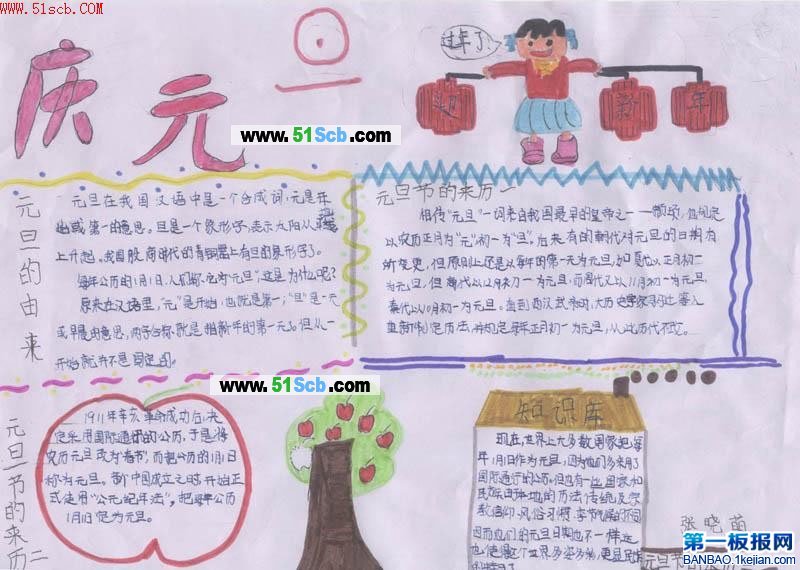 www.51scb.com
庆元旦
过年了!
迎新年
www.51Scb.com
元旦的由来
元旦在我国汉语中是一个合成词,元是开
始或第一的意思。旦是一个象形字,表示太阳从
上升起。我国殷商时代的青铜器上有旦的象形字了。
每年公历的1月1日,人们称它为“元旦”这是为什么呢?
原来在汉语里,“元”是开始,也就是第一;“旦”是一天
或早晨的意思,两字合称,就是指新年的第一天。但从一
开始就并不是固定的。
元旦节的来历一
相传“元旦”一词来自我国最早的皇帝之一——颛顼,他规定
以农历正月为“元”初一为“旦”。后来有的朝代对元旦的日期有
所变更,但原则上还是以每年的第一天为元旦,如夏代以正月初一
为元旦,但商代以12月初一为元旦,而周代又以11月初一为元旦,
秦代以10月初一为元旦。直到西汉武帝时,
重新制定历法,并规定每年正月初一为元旦,从此历代不变。
www.51Scb.com
元旦节的来历二
1911年辛亥革命成功后,决
定采用国际通行的公历,于是将
农历元旦改为“春节”,而把公历的1月1日
称为元旦。新中国成立之时开始正
式使用“公元纪年法”,把每年公历
1月1日定为元旦。
知识库
现在,世界上大多数国家把每
年1月1日作为元旦,因为他们多采用了
国际通行的公历。但也有一些国家和
民族由于本地的历法传统及宗
教信仰、风俗习惯、季节气候的不同
因而他们的元旦日期也不一样,这
也使得这个世界多姿多彩,更显
张晓萌
元旦节的来历
第一板报网
BANBAO.1kejian.com